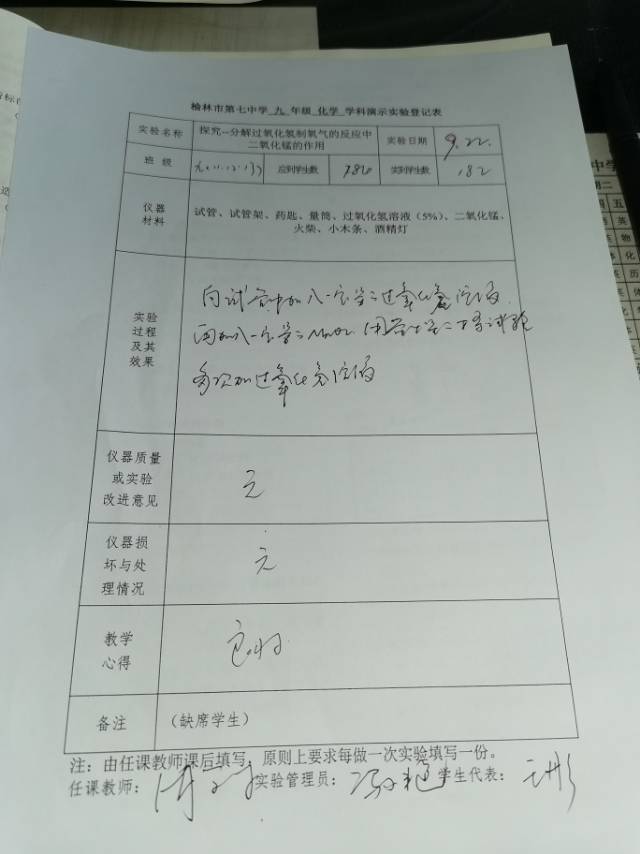 榆林市第七中学 九 年级 化学 学科演示实验登记表
实验名称 探究--分解过氧化氢制氧气的反应中二氧化锰的作用 实验日期 9.22.
班 级 应到学生数 实到学生数 182
仪器材料 试管、试管架、药匙、量筒、过氧化氢溶液（5%）、二氧化锰、
火柴、小木条、酒精灯
实验过程及其效果
向试管中加入一定量的过氧化氢溶液
再加入一定量的MnO2
多次加过氧化氢溶液
仪器质量或实验改进意见 无
仪器损坏与处理情况 无
教学心得 良好
备注 （缺席学生）
注：由任课教师课后填写，原则上要求每做一次实验填写一份。
任课教师： 实验管理员： 学生代表：